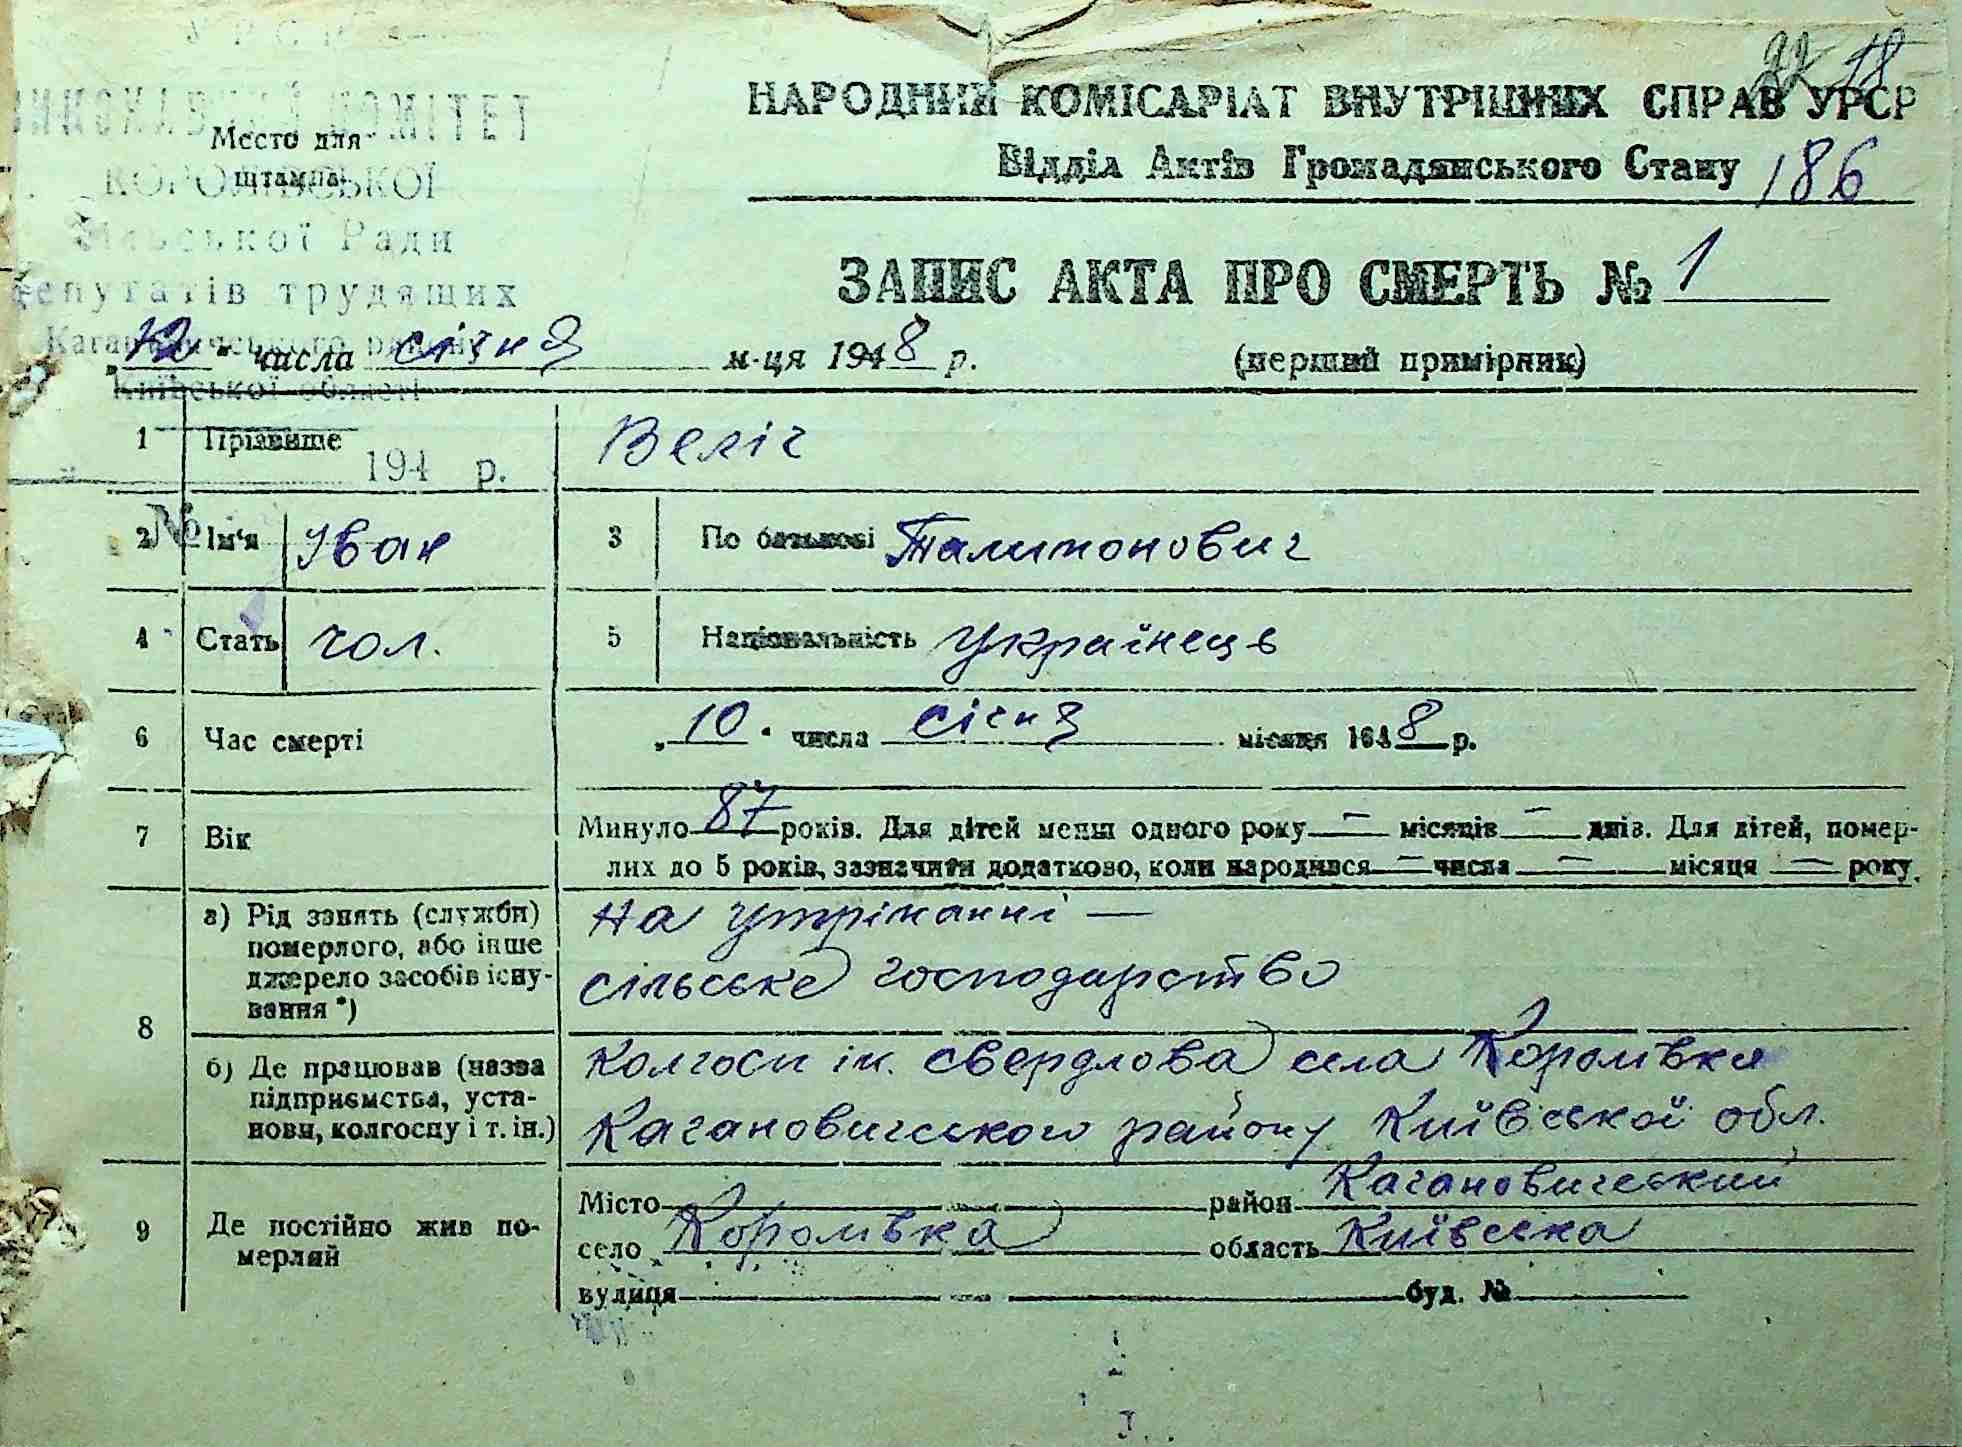 У Р С Р
ВИКОНАВЧИЙ КОМІТЕТ
КОРОЛІВСЬКОЇ
Сільської Ради
депутатів трудящих
Кагановичського району
Київської області
194 р.
№
Место для
штампа
22 18
НАРОДНИЙ КОМІСАРІАТ ВНУТРІШНІХ СПРАВ УРСР
Відділ Актів Громадянського Стану 186
ЗАПИС АКТА ПРО СМЕРТЬ № 1
„12" числа січня м-ця 1948 р. (перший примірник)
1 Прізвище Веліг
2 Ім'я Іван 3 По батькові Талимонович
4 Стать чол. 5 Національність Українець
6 Час смерті „10" числа січня місяця 1948 р.
7 Вік Минуло 87 років. Для дітей менш одного року — місяців — днів. Для дітей, помер-
лих до 5 років, зазначити додатково, коли народився — числа — місяця — року.
8 а) Рід занять (служби) померлого, або інше джерело засобів існу-вання *) На утріманні —
сільське господарство
б) Де працював (назва підприємства, уста-нови, колгоспу і т. ін.) Колгосп ім. свердлова села Королівка
Кагановичського району Київської обл.
9 Де постійно жив по-мерлий Місто район Кагановичеський
село Королівка область Київська
вулиця буд. №